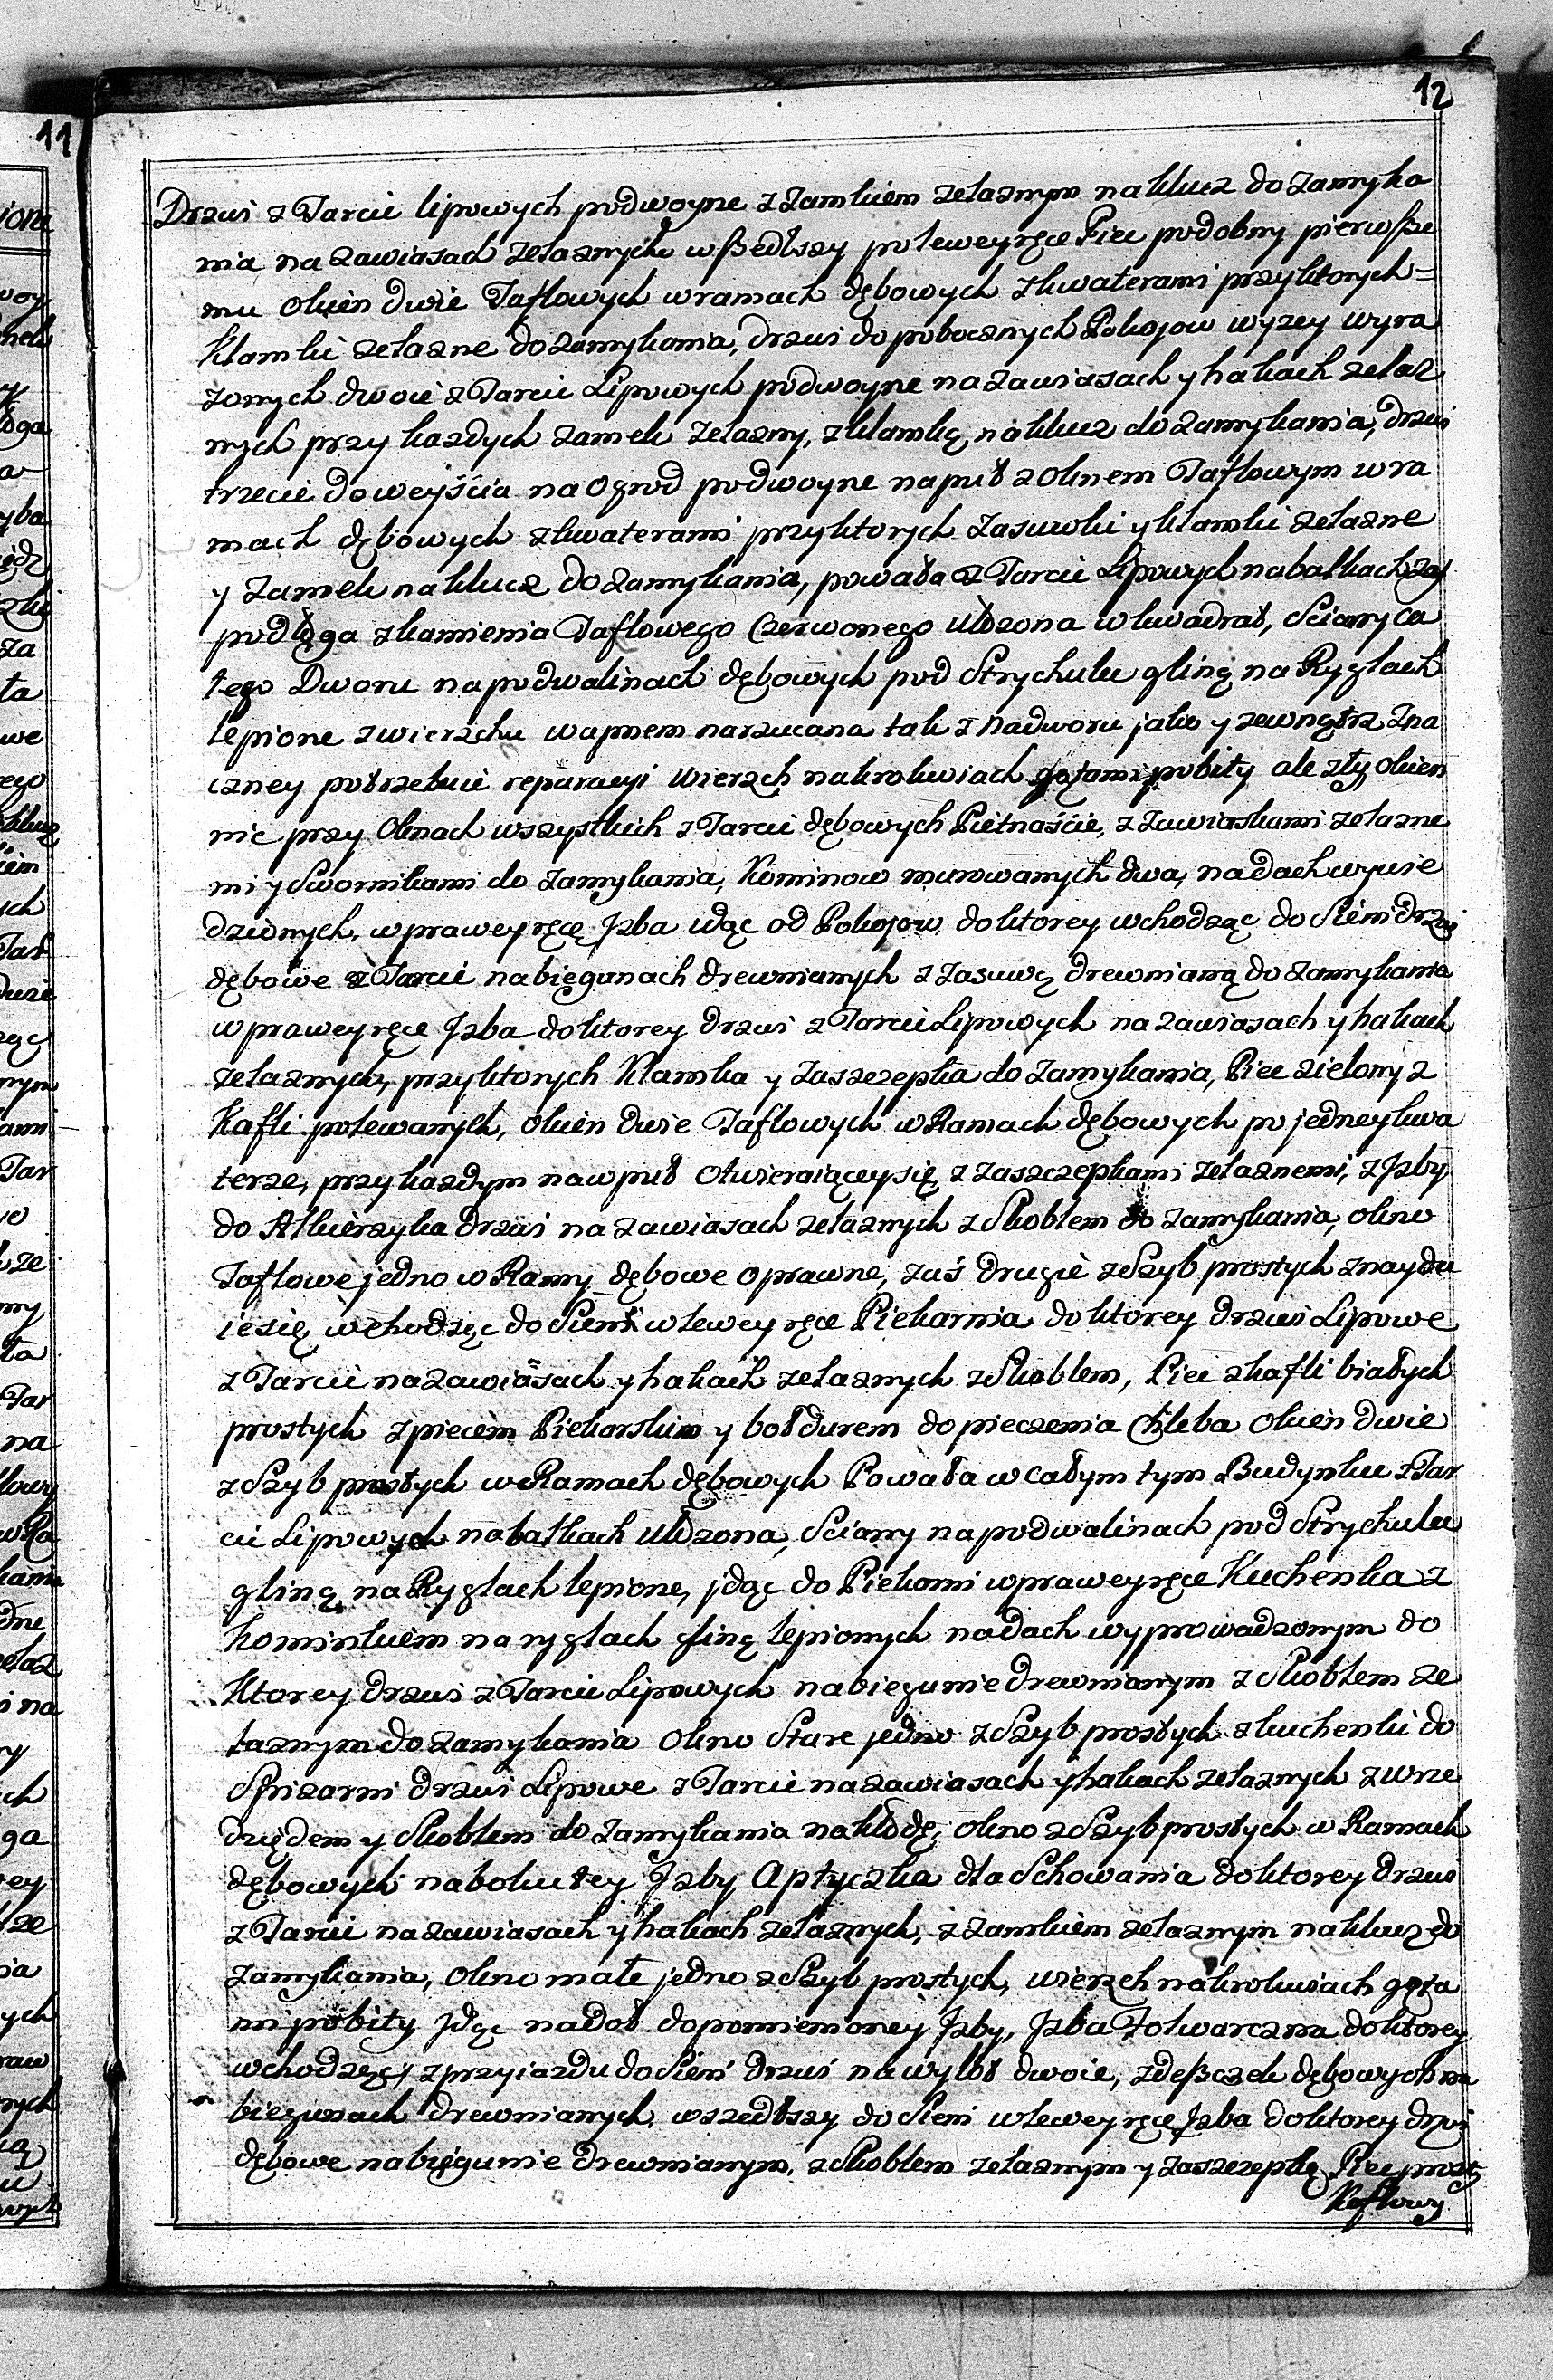 12
Drzwi z Tarcic lipowych podwoyne z zamkiem zelaznym na klucz do zamyka
nia na zawiasach zelaznych wszedłszy po lewey ręce Piec podobny pierwsze
mu Okien dwie Taflowych w ramach dębowych z kwaterami przy ktorych =
Klamki zelazne do zamykania, drzwi do pobocznych Pokojow wyzey wyra
zonych dwoie z Tarcic Lipowych podwoyne na zawiasach y hakach zelaz
nych przy kazdych zamek zelazny, z klamką na klucz do zamykania, drzwi
trzecie do weyścia na Ogrod podwoyne na puł z Oknem Taflowym w ra
mach dębowych z kwaterami przy ktorych zasuwki y klamki zelazne
y zamek na klucz do zamykania, powała z Tarcic Lipowych na balkach zaś
podłoga z kamienia Taflowego Czerwonego ułozona w kwadrat, Sciany ca
łego Dworu na podwalinach dębowych pod Strychulec gliną na Ryglach
lepione z wierzchu wapnem narzucana tak z nadworu jako y zewnątrz zna
czney potrzebuie reparacyi wierzch na krokwiach gątami pobity ale zły okien
nic przy Oknach wszystkich z Tarcic dębowych Pietnaście, z zawiaskami zelazne
mi y Swornikami do zamykania, Kominow murowanych dwa, na dach wywie
dzionych, w prawey ręcę Jzba idąc od Pokojow do ktorey wchodząc do Sieni drzwi
dębowe z Tarcic na biegunach drewnianych z zasuwą drewnianą do zamykania
w prawey ręce Jzba do ktorey drzwi z Tarcic Lipowych na zawiasach y hakach
zelaznych, przy ktorych Klamka y zaszczepka do zamykania, Piec zielony z
Kafli polewanych, okien dwie Taflowych w Ramach dębowych po jedney kwa
terze, przy kazdym na wpuł otwieraiącey się z zaszczepkami zelaznemi, z Jzby
do Alkierzyka drzwi na zawiasach zelaznych z Skoblem do zamykania, okno
Taflowe jedno w Ramy dębowe oprawne, zaś drugie z Szyb prostych znaydu
ie się wchodząc do Sieni w lewey ręce Piekarnia do ktorey drzwi Lipowe
z Tarcic na zawiasach y hakach zelaznych z Skoblem, Piec z kafli białych
prostych z piecem Piekarskim y bołdurem do pieczenia Chleba Okien dwie
z Szyb prostych w Ramach dębowych Powała w całym tym Budynku z Tar
cic Lipowych na balkach ułozona, Sciany na podwalinach pod Strychulec
gliną na Ryglach lepione, jdąc do Piekarni w prawey ręce Kuchenka z
Kominkiem na ryglach gliną lepionych na dach wyprowadzonym do
Ktorey drzwi z Tarcic Lipowych na biegunie drewnianym z Skoblem ze
laznym do zamykania Okno Stare jedno z Szyb prostych z kuchenki do
Spizarni drzwi Lipowe z Tarcic na zawiasach y hakach zelaznych z wrze
dzędem y Skoblem do zamykania na kłodę, okno z Szyb prostych w Ramach
dębowych na boku tey Jzby Aptyczka dla Schowania do ktorey drzwi
z Tarcic na zawiasach y hakach zelaznych, z zamkiem zelaznym na klucz do
zamykania, Okno małe jedno z Szyb prostych, wierzch na krokwiach gąta
mi pobity jdąc na doł do pomienioney Jzby, Jzba Folwarczna do ktorey
wchodzący z przyiazdu do Sieni drzwi na wylot dwoie, z deszczek dębowych na
biegunach drewnianych wszedłszy do Sieni w lewey ręce Jzba do ktorey drzwi
dębowe na biegunie drewnianym, z Skoblem zelaznym y zaszczepką, Piec prosty
Kaflowy